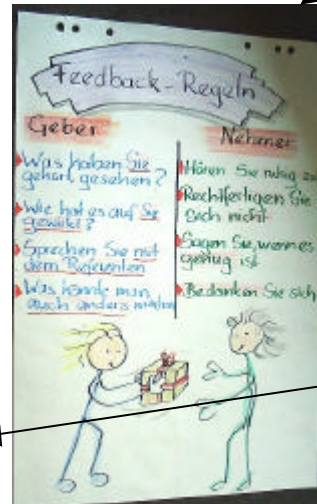 Feedback-Regeln
Geber
Was haben Sie
gehört, gesehen?
Wie hat es auf Sie
gewirkt?
Sprechen Sie mit
dem Referenten
Was könnte man
auch anders machen
Nehmer
Hören Sie ruhig zu
Rechtfertigen Sie
sich nicht
Sagen Sie, wenn es
genug ist
Bedanken Sie sich